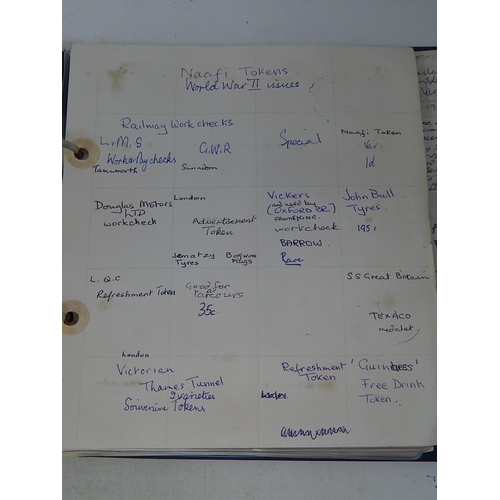 Naafi Tokens
World War II issues
Railway Workchecks
L.M.S
Works Paychecks
Tamworth
G.W.R
Swindon
Special
Naafi Token
1d
Douglas Motors
LTD
workcheck
London
Advertisement
Token
Tyres
Mugs
Vickers
(OXFORD CR)
workcheck
BARROW.
Rare
John Bull
Tyres.
1951
Refreshment Token
Good for
Parcours
35c.
SS Great Britain
TEXACO
medalet
London
Victorian
Thames Tunnel
2 varieties
Souvenire Tokens
Refreshment
Token
'Guinness'
Free Drink
Token.